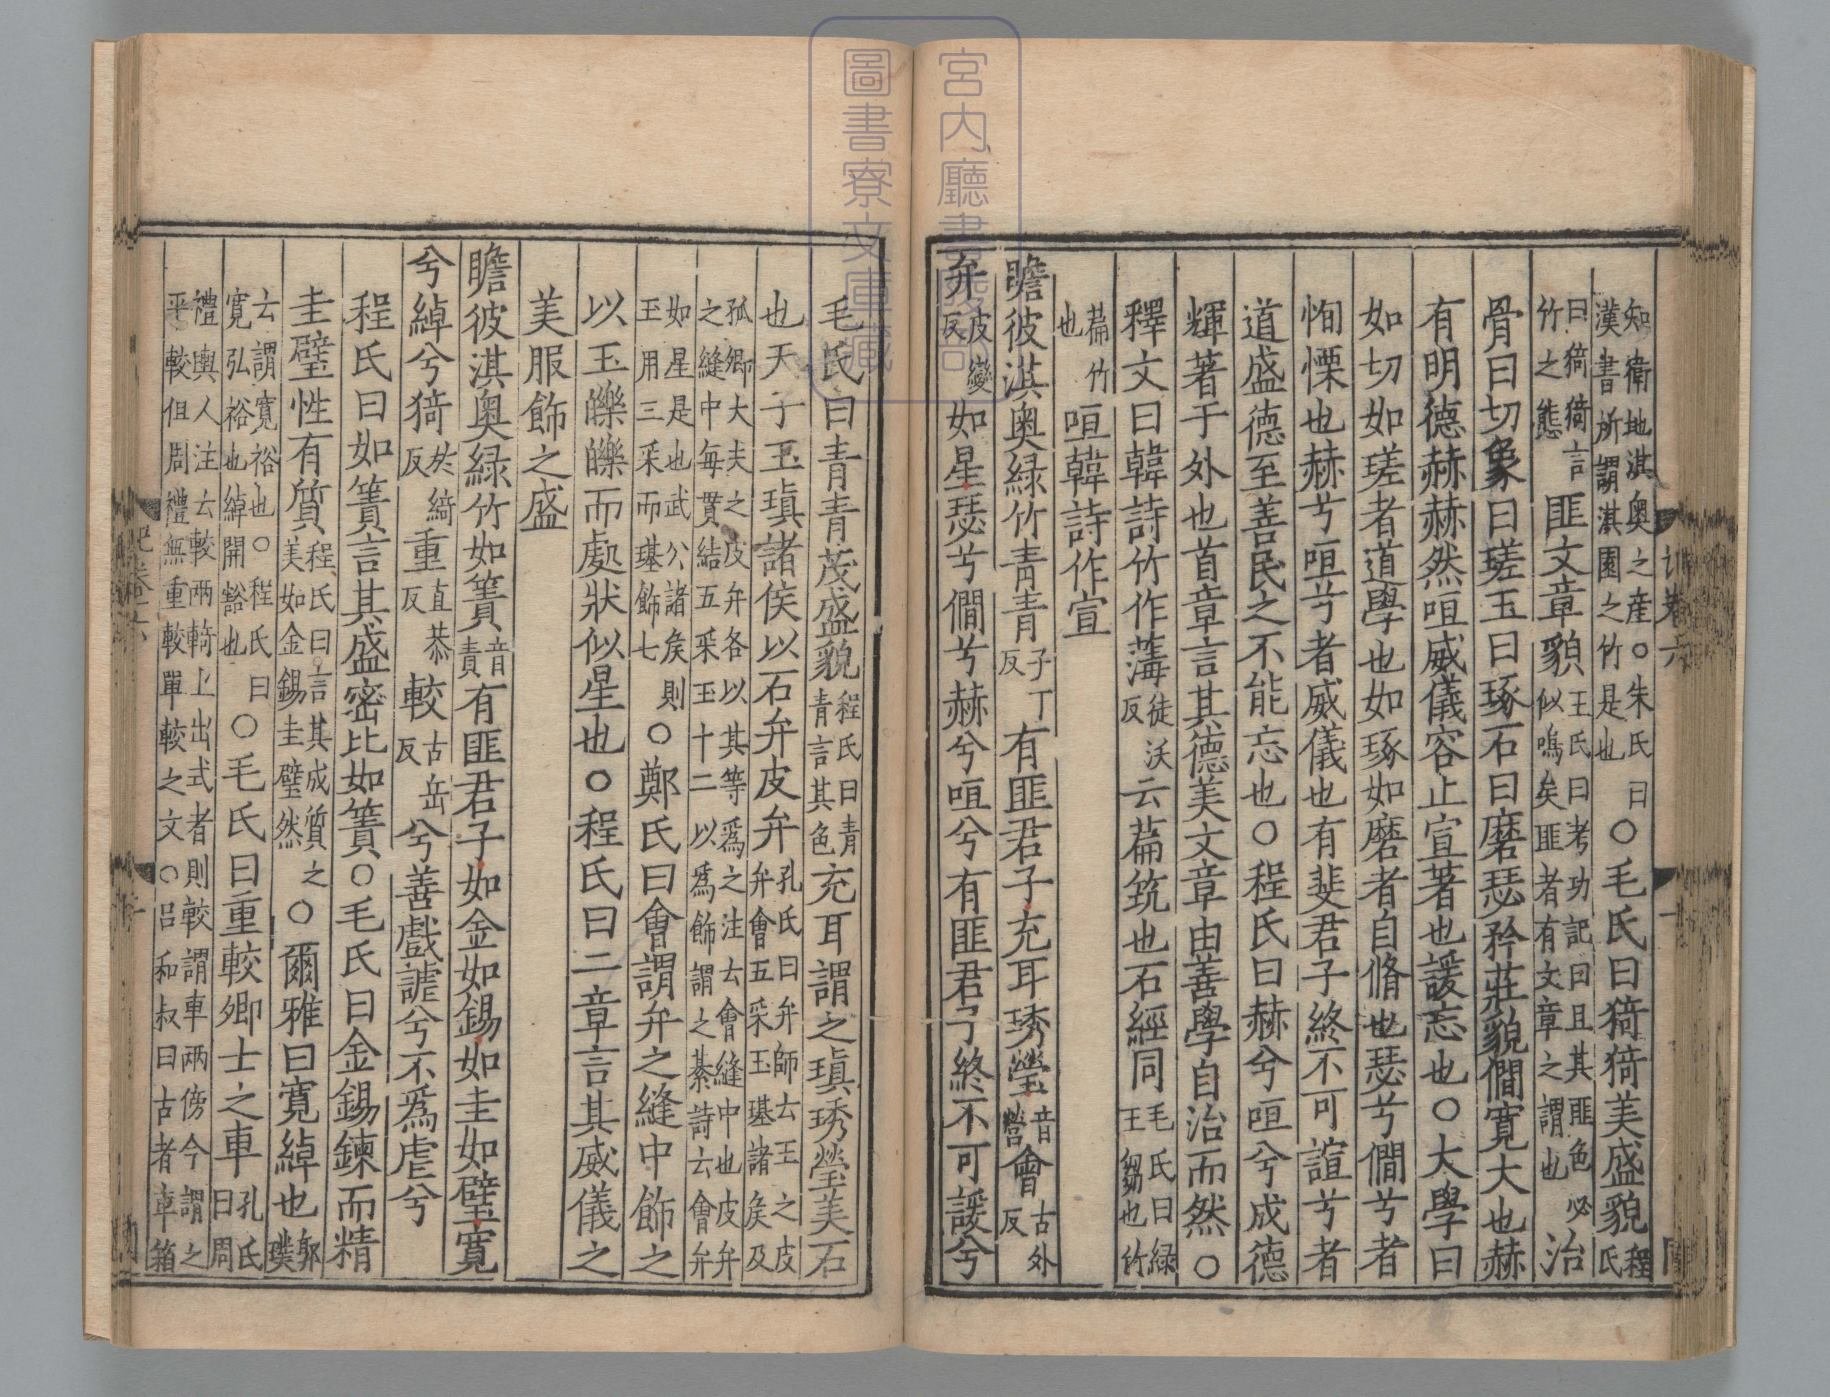 知衛地淇奧之産○朱氏曰漢書所謂淇園之竹是也○毛氏曰猗猗美盛貌程氏
曰猗猗言竹之態匪文章貌王氏曰考功記曰且其匪色必似鳴矣匪者有文章之謂也治
骨曰切象曰瑳玉曰琢石曰磨瑟矜莊貌僩寛大也赫
有明德赫赫然咺威儀容止宣著也諼忘也○大學曰
如切如瑳者道學也如琢如磨者自脩也瑟兮僩兮者
恂慄也赫兮咺兮者威儀也有斐君子終不可諠兮者
道盛德至善民之不能忘也○程氏曰赫兮咺兮成德
輝著于外也首章言其德美文章由善學自治而然○
釋文曰韓詩竹作薄徒沃反云萹筑也石經同毛氏曰綠王芻也竹
萹竹也咺韓詩作宣
瞻彼淇奧綠竹青青子丁反有匪君子充耳琇瑩音營會古外反
弁皮變反如星瑟兮僩兮赫兮咺兮有匪君子終不可諼兮
毛氏曰青青茂盛貌程氏曰青青言其色充耳謂之瑱琇瑩美石
也天子玉瑱諸侯以石弁皮弁孔氏曰弁師云王之皮弁會五采玉璂諸侯及
孤卿大夫之皮弁各以其等爲之注云會縫中也皮弁之縫中每貫結五采玉十二以爲飾謂之綦詩云會弁
如星是也武公諸侯則玉用三采而璂飾七○鄭氏曰會謂弁之縫中飾之
以玉皪皪而處狀似星也○程氏曰二章言其威儀之
美服飾之盛
瞻彼淇奧綠竹如簀音責有匪君子如金如錫如圭如璧寛
兮綽兮猗於綺反重直恭反較古岳反兮善戲謔兮不爲虐兮
程氏曰如簀言其盛密比如簀○毛氏曰金錫鍊而精
圭璧性有質程氏曰言其成質之美如金錫圭璧然○爾雅曰寛綽也郭璞
云謂寛裕也○程氏曰寛弘裕也綽開豁也○毛氏曰重較卿士之車孔氏曰周
禮輿人注云較兩輢上出式者則較謂車兩傍今謂之平較但周禮無重較單較之文○呂和叔曰古者車箱